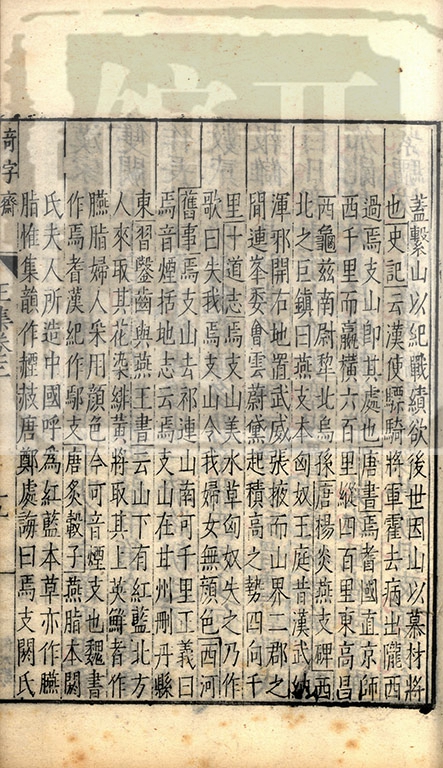 蓋繫山以紀戰績欲後世因山以慕材將
也史記云漢使驃騎將軍霍去病出隴西
過焉支山即其處也唐書焉耆國直京師
西千里而贏橫六百里縱四百里東高昌
西龜兹南尉犁北烏孫唐楊炎燕支碑西
北之巨鎮曰燕支本匈奴王庭昔漢武納
渾邪開右地置武威張掖而山界二郡之
間連峯委會雲蔚黛起積高之勢四向千
里十道志焉支山美水草匈奴失之乃作
歌曰失我焉支山令我婦女無顏色西河
舊事焉支山去祁連山南可千里正義曰
焉音煙括地志云焉支山在甘州刪丹縣
東習鑿齒與燕王書云山下有紅藍北方
人來取其花染緋黃將取其上英鮮者作
臙脂婦人采用顏色今可音煙支也魏書
作焉耆漢紀作鄢支唐炙轂子燕脂本閼
氏夫人所造中國呼為紅藍本草亦作臙
脂惟集韻作𦠿䞓唐鄭處誨曰焉支閼氏
奇字齋
王集卷三